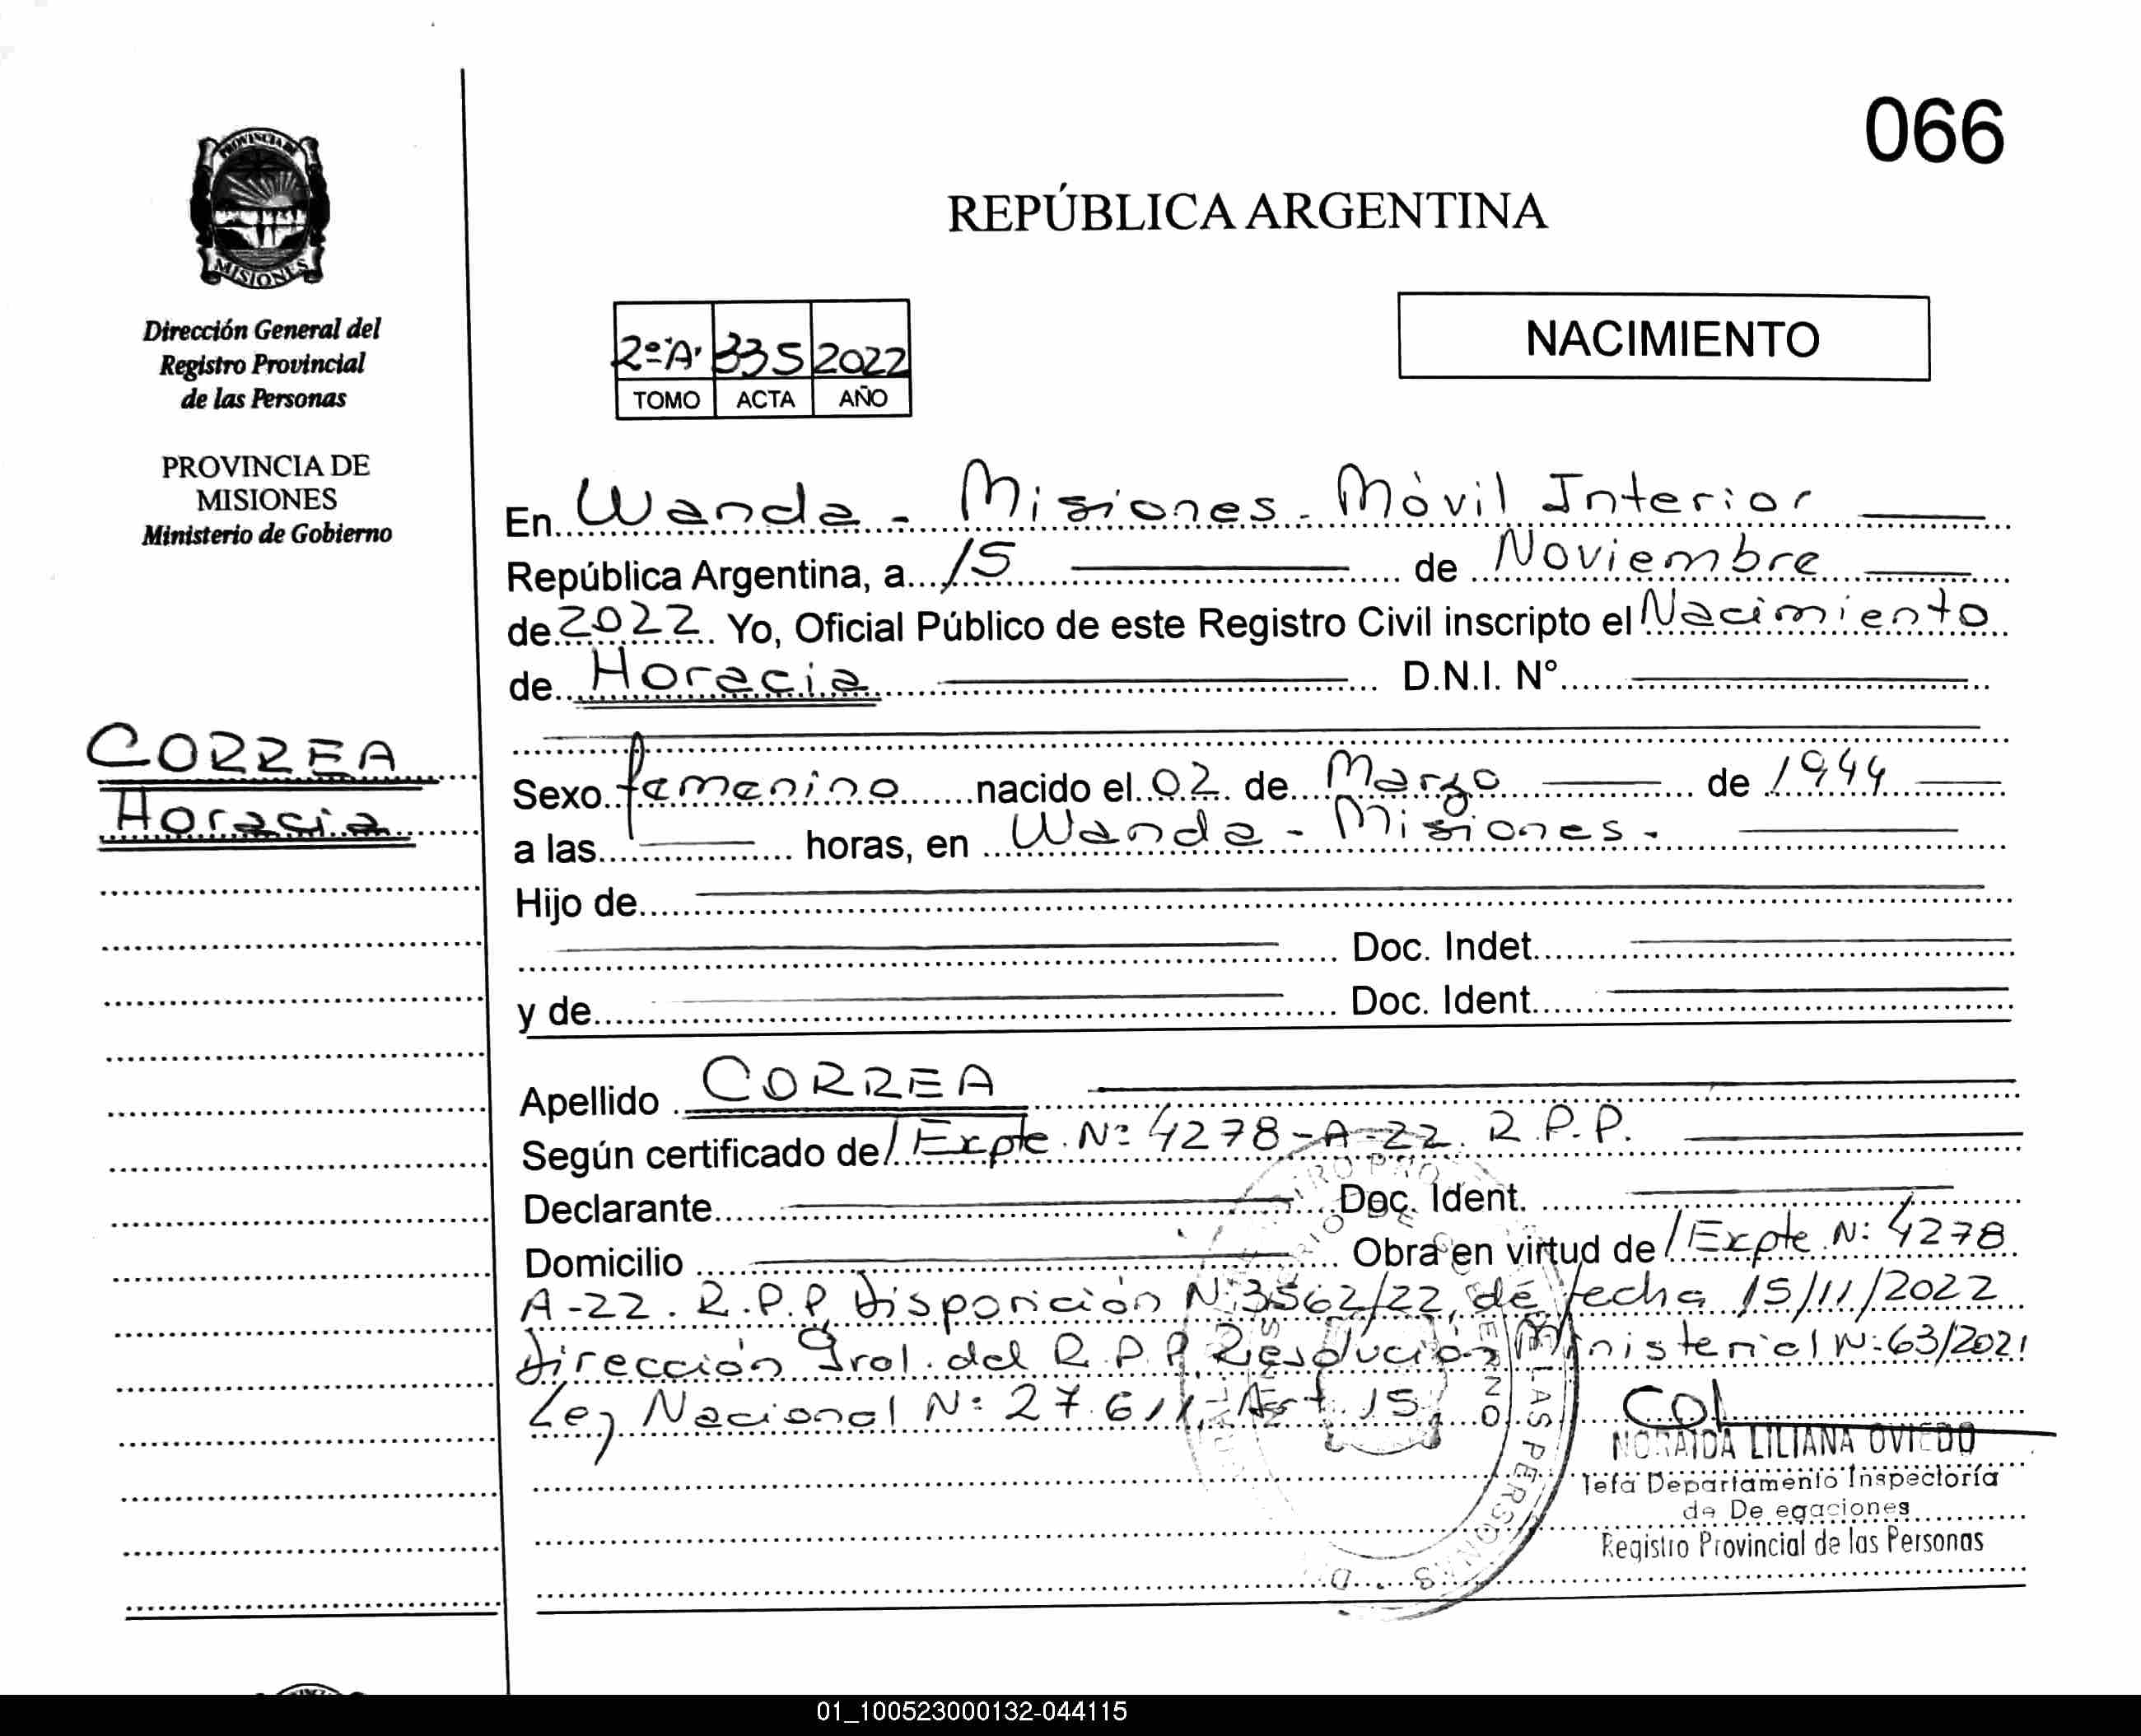 066
PROVINCIA DE
MISIONES
Dirección General del
Registro Provincial
de las Personas
PROVINCIA DE
MISIONES
Ministerio de Gobierno
CORREA
Horacia
REPÚBLICA ARGENTINA
2º"A" 335 2022
TOMO ACTA AÑO
NACIMIENTO
En Wanda - Misiones - Móvil Interior
República Argentina, a 15 de Noviembre
de 2022. Yo, Oficial Público de este Registro Civil inscripto el Nacimiento
de Horacia D.N.I. Nº
Sexo femenino nacido el 02 de Marzo de 1944
a las horas, en Wanda - Misiones -
Hijo de
Doc. Indet.
y de Doc. Ident.
Apellido CORREA
Según certificado de/ Expte. Nº 4278-A-22. R.P.P.
Declarante Doc. Ident.
Domicilio Obra en virtud de/ Expte Nº 4278
A-22. R.P.P, Disposición Nº 3562/22, de fecha 15/11/2022
Dirección Gral. del R.P.P. Resolución Ministerial Nº 63/2021
Ley Nacional Nº 27.611, Art. 15,
NORAIDA LILIANA OVIEDO
Jefa Departamento Inspectoría
de De egaciones
Registro Provincial de las Personas
LAS PERSONAS
01_100523000132-044115